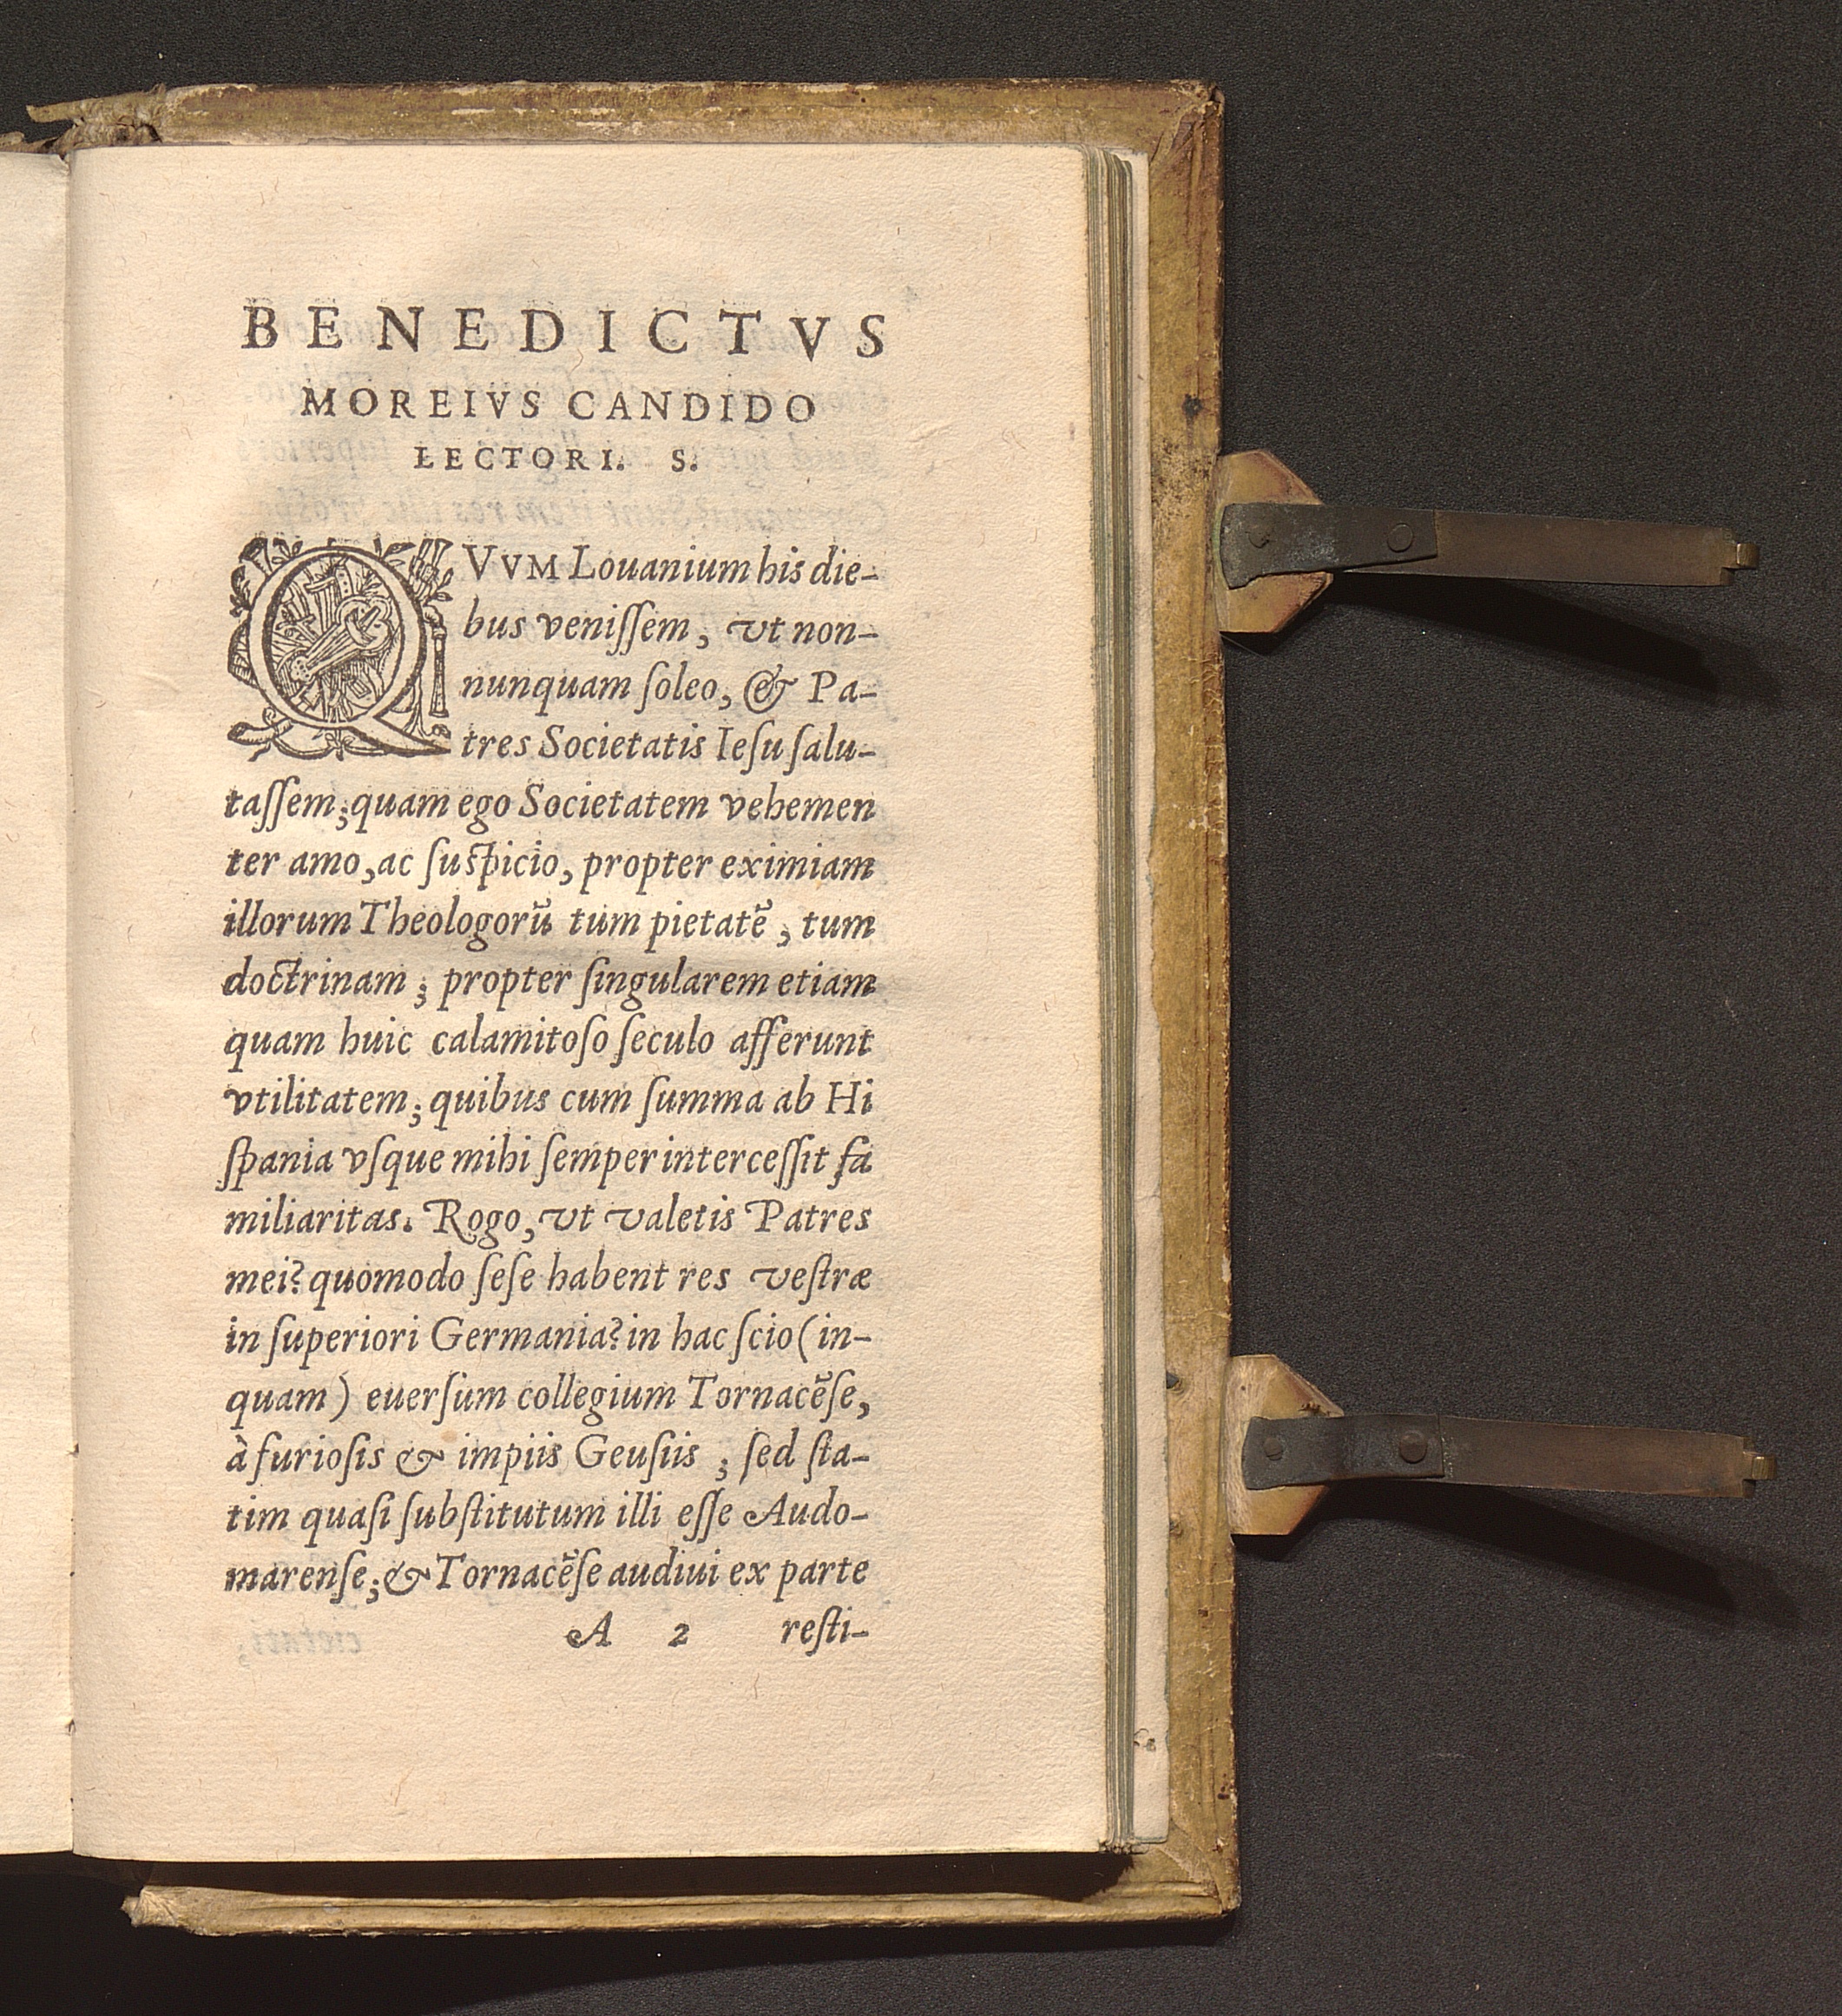 BENEDICTVS
MOREIVS CANDIDO
LECTORI. S.
QVVM Louanium his die-
bus veniſſem, vt non-
nunquam ſoleo, & Pa-
tres Societatis Ieſu ſalu-
taſſem; quam ego Societatem vehemen
ter amo, ac ſuſpicio, propter eximiam
illorum Theologorū tum pietatē, tum
doctrinam; propter ſingularem etiam
quam huic calamitoſo ſeculo afferunt
vtilitatem; quibus cum ſumma ab Hi
ſpania vſque mihi ſemper interceſſit fa
miliaritas. Rogo, vt valetis Patres
mei? quomodo ſeſe habent res veſtræ
in ſuperiori Germania? in hac ſcio (in-
quam) euerſum collegium Tornacēſe,
à furioſis & impiis Geuſiis; ſed ſta-
tim quaſi ſubſtitutum illi eſſe Audo-
marenſe; & Tornacēſe audiui ex parte
A 2 reſti-